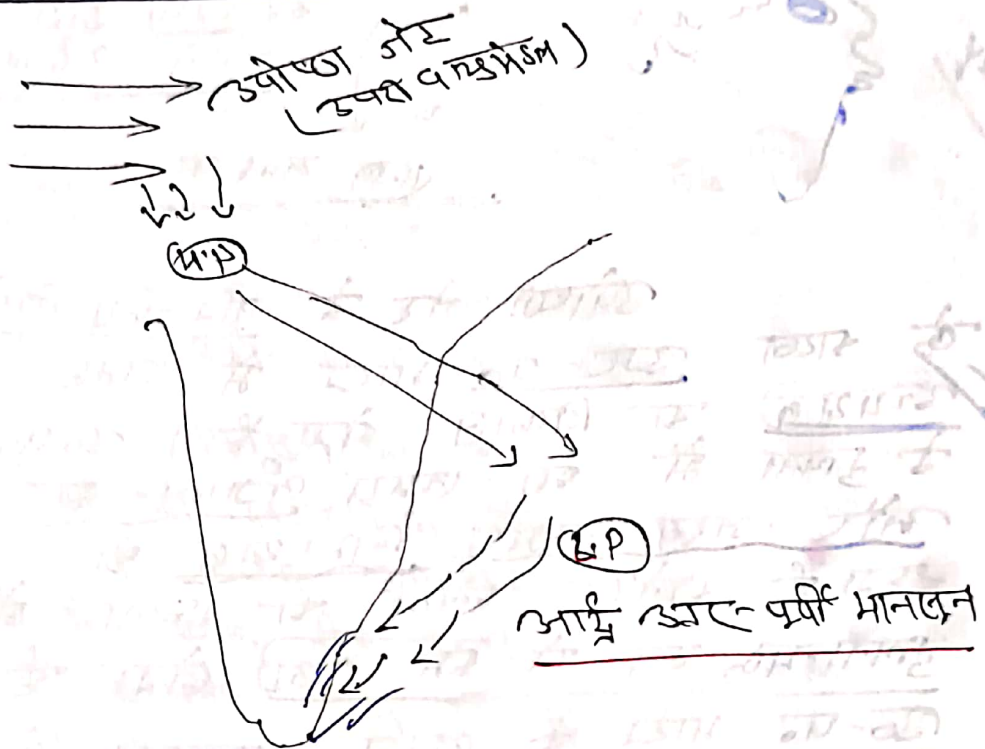 उपोष्ण जेट
(उपरी वायुमंडल)
H.P
L.P
आर्द्र उत्तर-पूर्वी मानसून